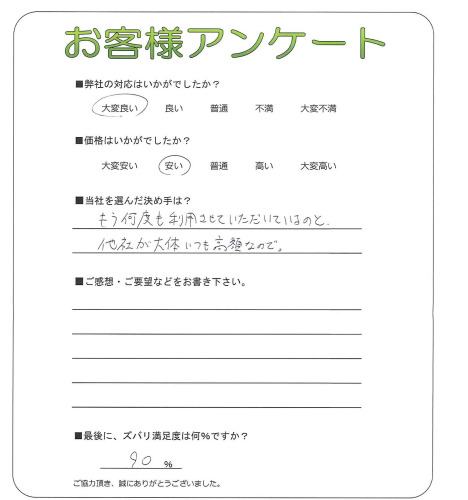 お客様アンケート
■弊社の対応はいかがでしたか？
大変良い 良い 普通 不満 大変不満
■価格はいかがでしたか？
大変安い 安い 普通 高い 大変高い
■当社を選んだ決め手は？
もう何度も利用させていただいているのと、
他社が大体いつも高額なので。
■ご感想・ご要望などをお書き下さい。
■最後に、ズバリ満足度は何%ですか？
90 %
ご協力頂き、誠にありがとうございました。